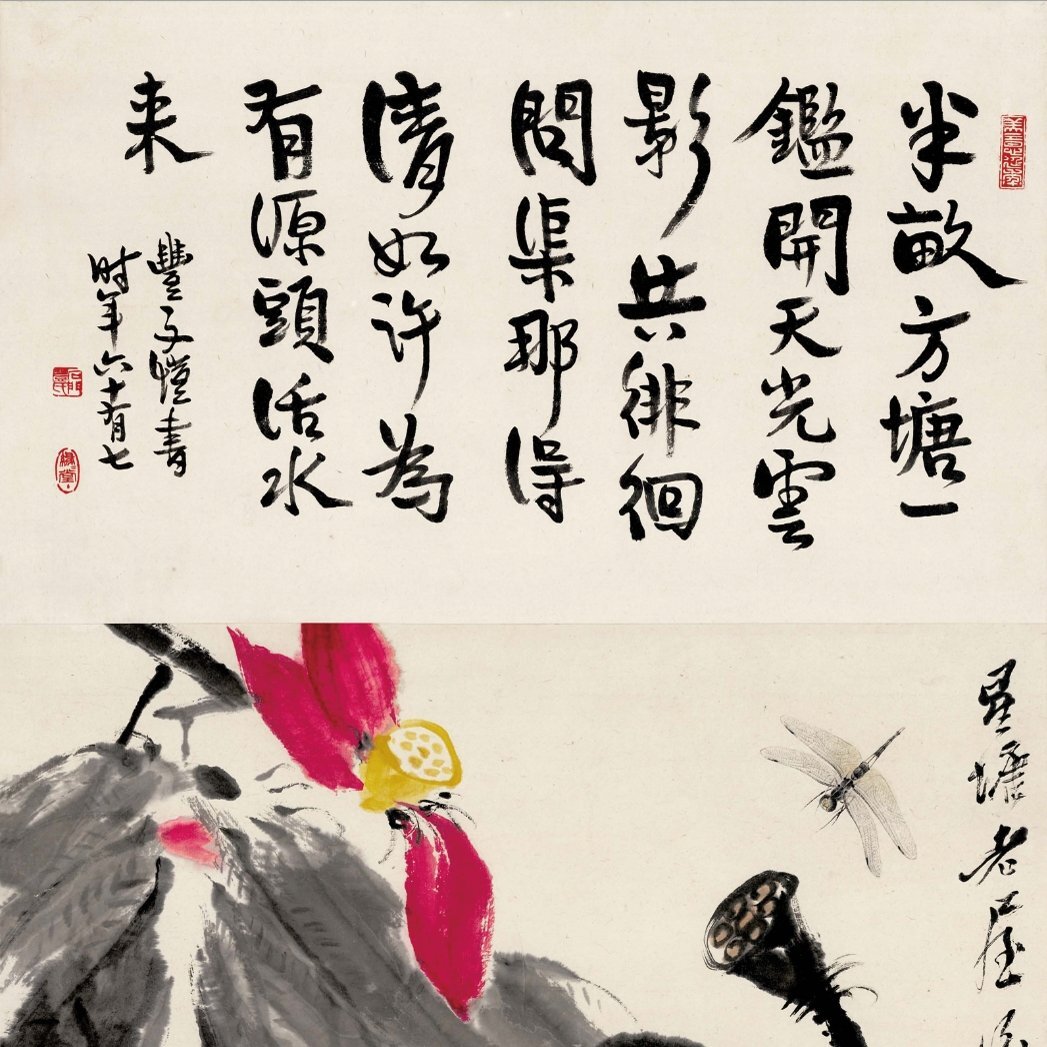 半畝方塘一
鑑開天光雲
影共徘徊
問渠那得
清如許為
有源頭活水
来
豐子愷書
时年六十有七
星塘老屋